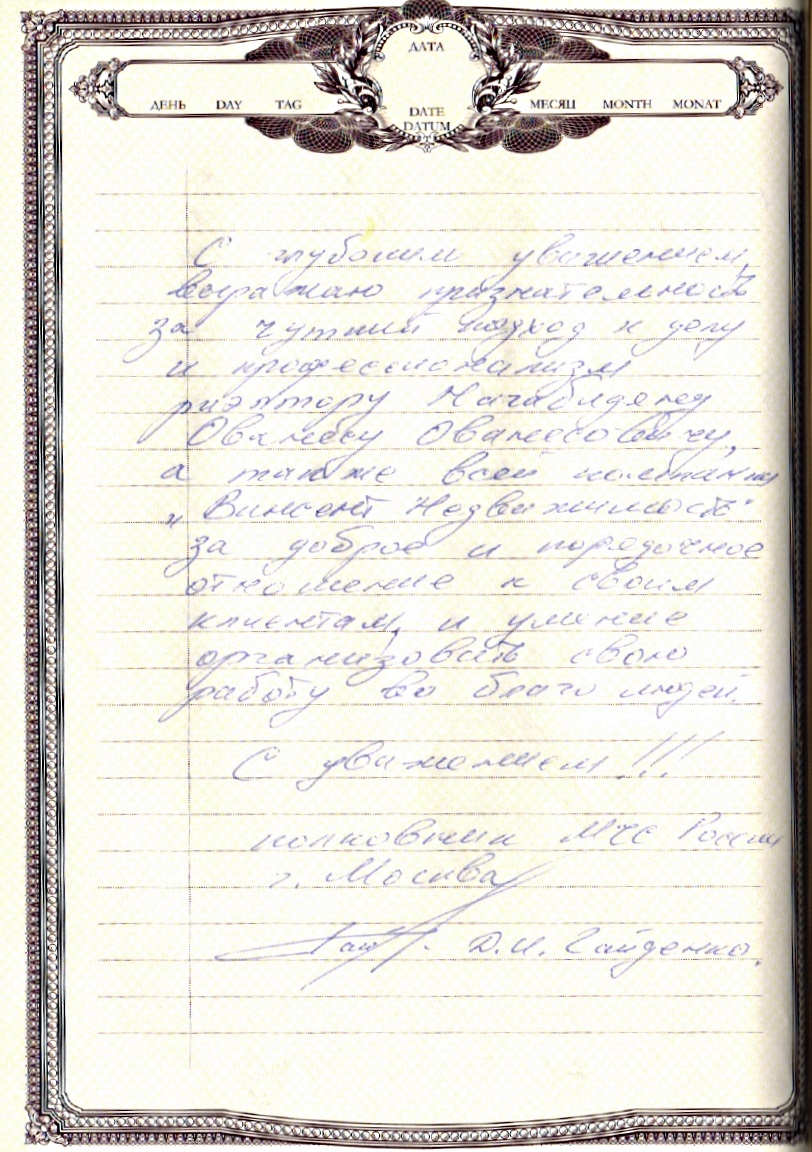 ДАТА
ДЕНЬ DAY TAG
DATE
DATUM
МЕСЯЦ MONTH MONAT
С глубоким уважением,
выражаю признательность
за чуткий подход к делу
и профессионализм
риэлтору
Ованесу Ованесовичу,
а также всей компании
"Винсент Недвижимость"
за доброе и порядочное
отношение к своим
клиентам, и умение
организовать свою
работу во благо людей.
С уважением!!!
полковник МЧС России
г. Москва
Д.И. Гайденко.